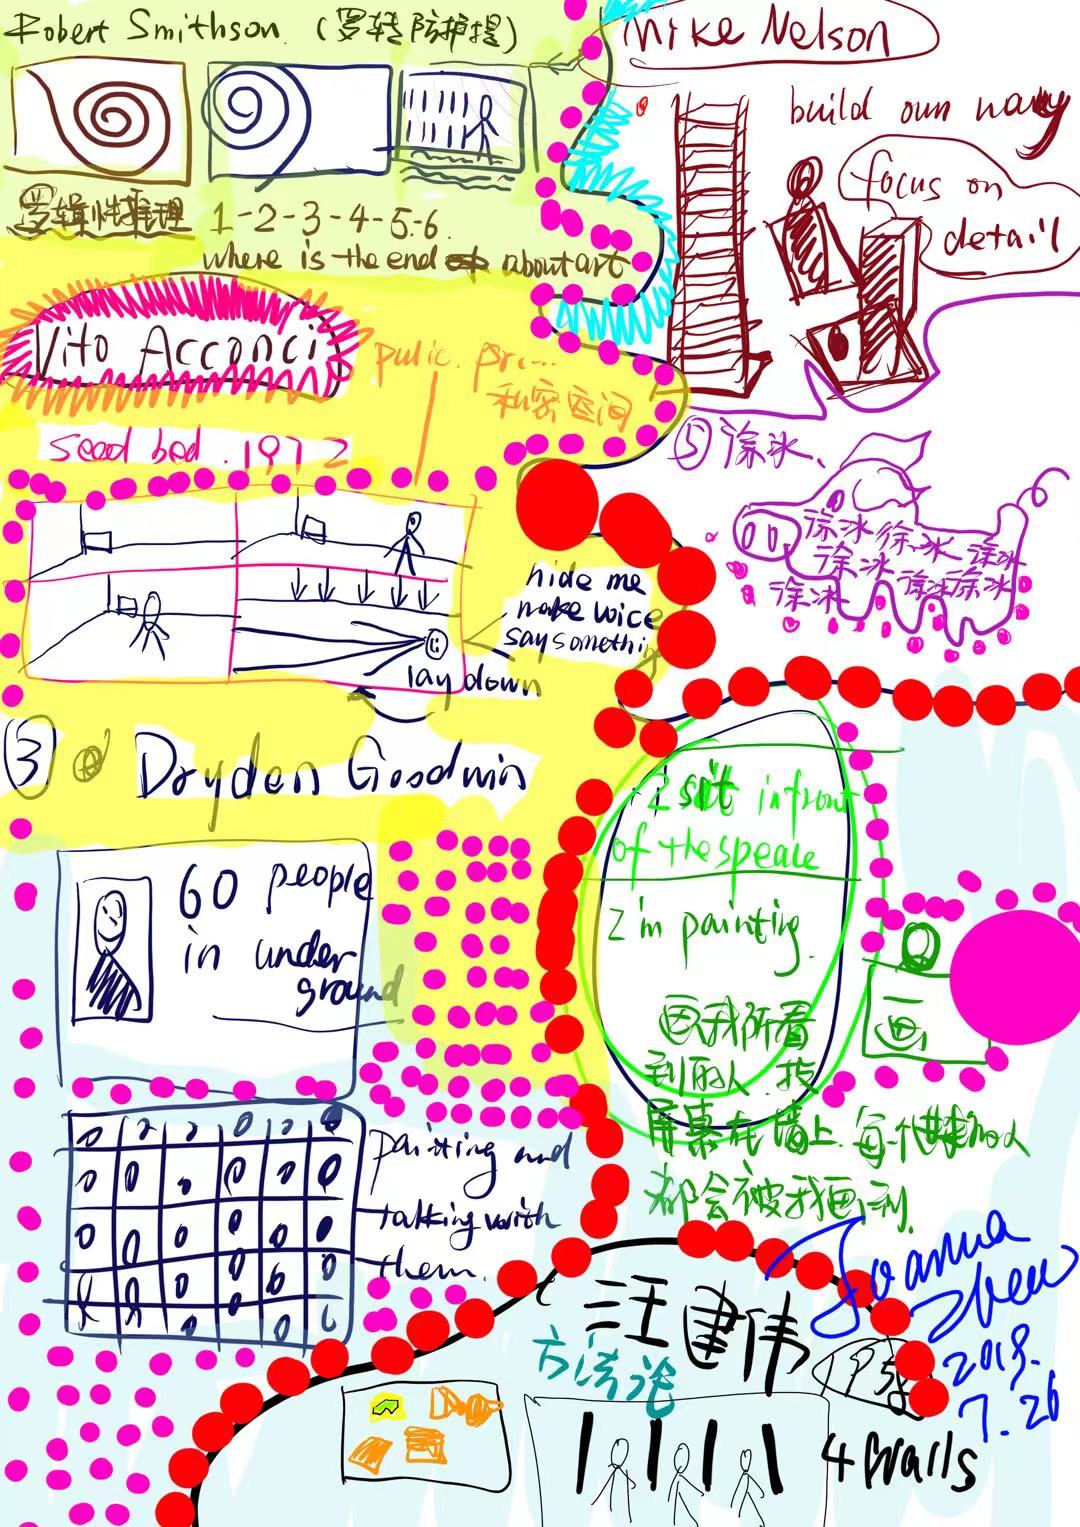 Robert Smithson. (罗转防护提)
逻辑性推理
1-2-3-4-5.-6.
where is the end about art
Mike Nelson
build own
focus on
detail
Vito Acconci
pulic. pri...
私密空间
seed bed. 1972
hide me
make voice
say somethin
lay down
⑤徐冰、
徐冰 徐冰 徐冰
徐冰 徐冰 徐冰
徐冰
③
Dryden Goodwin
60 people
in under
ground
painting and
talking with
them.
I sit in front
of the speace
I'm painting.
画我所看
到的人 投
屏幕在墙上 每个
都会被我画到.
画
汪建伟
方法论
4 walls
Joanna
2018.
7.26